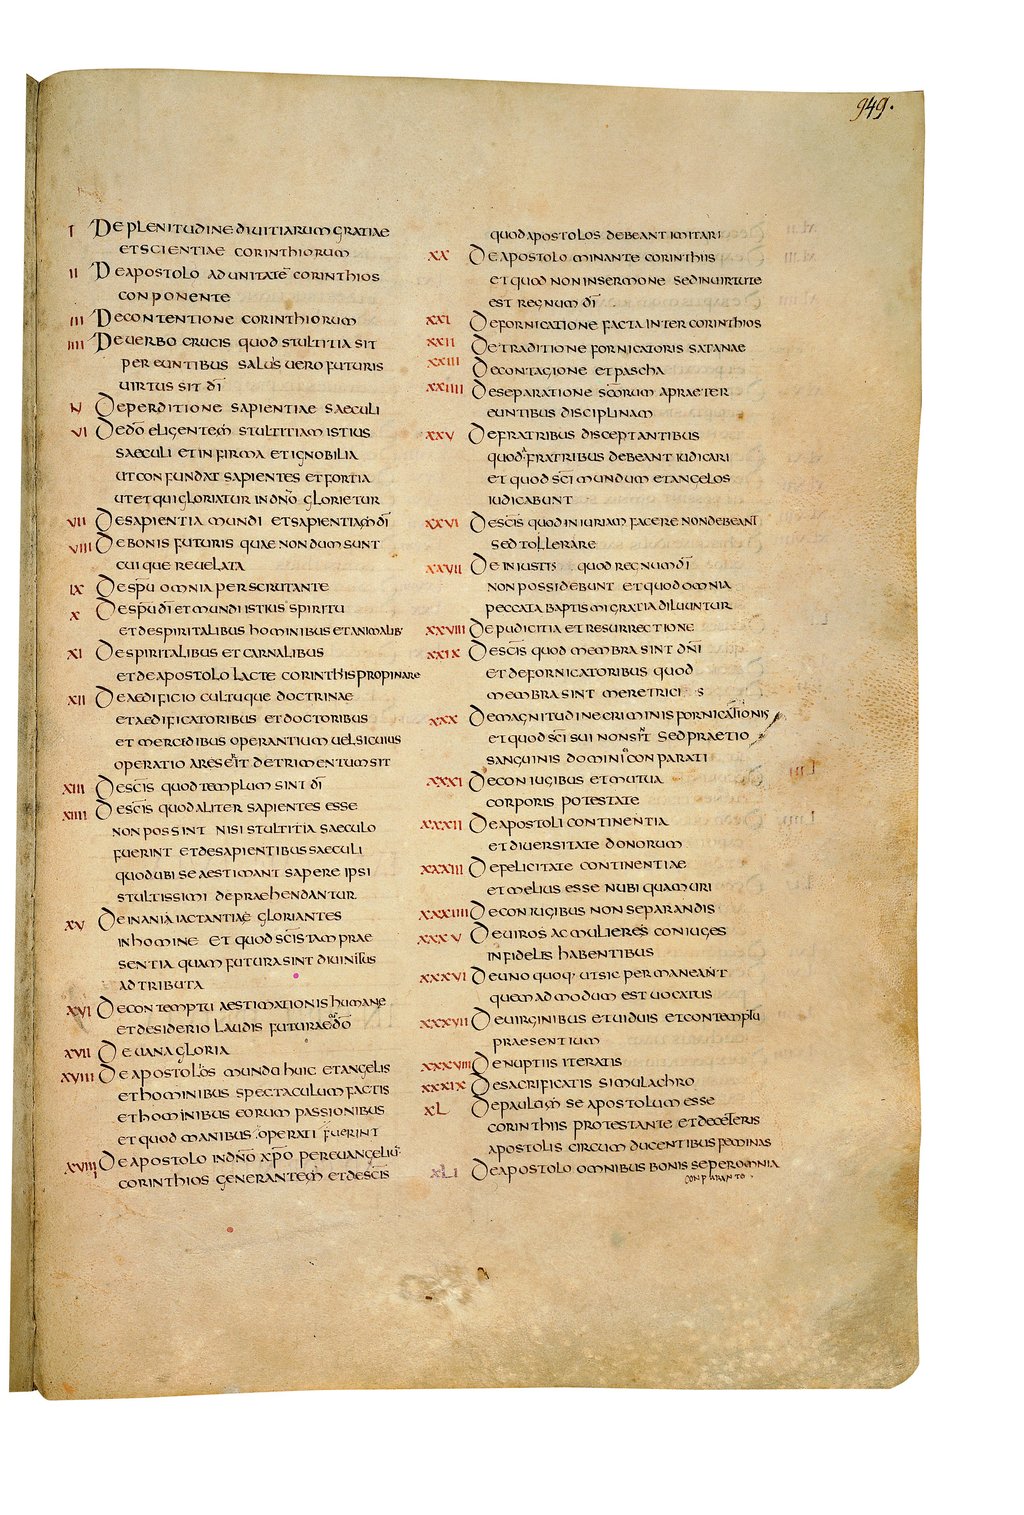 949.
I De plenitudine diuitiarum gratiae
et scientiae corinthiorum
II De apostolo ad unitatē corinthios
conponente
III De contentione corinthiorum
IIII De uerbo crucis quod stultitia sit
pereuntibus salus uero futuris
uirtus sit dī
V De perditione sapientiae saeculi
VI De dō eligentem stultitiam istius
saeculi et infirma et ignobilia
ut confundat sapientes et fortia
ut et qui gloriatur in dnō glorietur
VII De sapientia mundi et sapientiam dī
VIII De bonis futuris quae nondum sunt
cuique reuelata
IX De spū omnia perscrutante
X De spū dī et mundi istius spiritu
et de spiritalibus hominibus et animalib·
XI De spiritalibus et carnalibus
et de apostolo lacte corinthis propinare
XII De aedificio cultuque doctrinae
et aedificatoribus et doctoribus
et mercidibus operantium uel si cuius
operatio arserit detrimentum sit
XIII De scīs quod templum sint dī
XIIII De scīs quod aliter sapientes esse
non possint nisi stultitia saeculo
fuerint et de sapientibus saeculi
quod ubi se aestimant sapere ipsi
stultissimi depraehendantur
XV De inania iactantiae gloriantes
in homine et quod scīs tam prae
sentia quam futura sint diuinitus
adtributa
XVI De contemptu aestimationis humane
et desiderio laudis futurae a dō
XVII De uana gloria
XVIII De apostolos mundo huic et angelis
et hominibus spectaculum factis
et hominibus eorum passionibus
et quod manibus operati fuerint
XVIIII De apostolo in dnō xpō per euangeliū
corinthios generantem et de scīs
quod apostolos debeant imitari
XX De apostolo minante corinthiis
et quod non in sermone sed in uirtute
est regnum dī
XXI De fornicatione facta inter corinthios
XXII De traditione fornicatoris satanae
XXIII De contagione et pascha
XXIIII De separatione scōrum a praeter
euntibus disciplinam
XXV De fratribus disceptantibus
quod a fratribus debeant iudicari
et quod scī mundum et angelos
iudicabunt
XXVI De scīs quod iniuriam facere non debeant
sed tollerare
XXVII De iniustis quod regnum dī
non possidebunt et quod omnia
peccata baptismi gratia diluuntur
XXVIII De pudicitia et resurrectione
XXIX De scīs quod membra sint dnī
et de fornicatoribus quod
membra sint meretricis
XXX De magnitudine criminis fornicationis
et quod scī sui non sint sed praetio
sanguinis dominico nparati
XXXI De coniugibus et mutua
corporis potestate
XXXII De apostoli continentia
et diuersitate donorum
XXXIII De felicitate continentiae
et melius esse nubi quam uri
XXXIIII De coniugibus non separandis
XXXV De uiros ac mulieres coniuges
infidelis habentibus
XXXVI De uno quoq· ut sic permaneant
quemadmodum est uocatus
XXXVII De uirginibus et uiduis et contemptu
praesentium
XXXVIII De nuptiis iteratis
XXXIX De sacrificatis simulachro
XL De paulam se apostolum esse
corinthiis protestante et de ceteris
apostolis circumducentibus feminas
XLI De apostolo omnibus bonis se per omnia
conparanto·